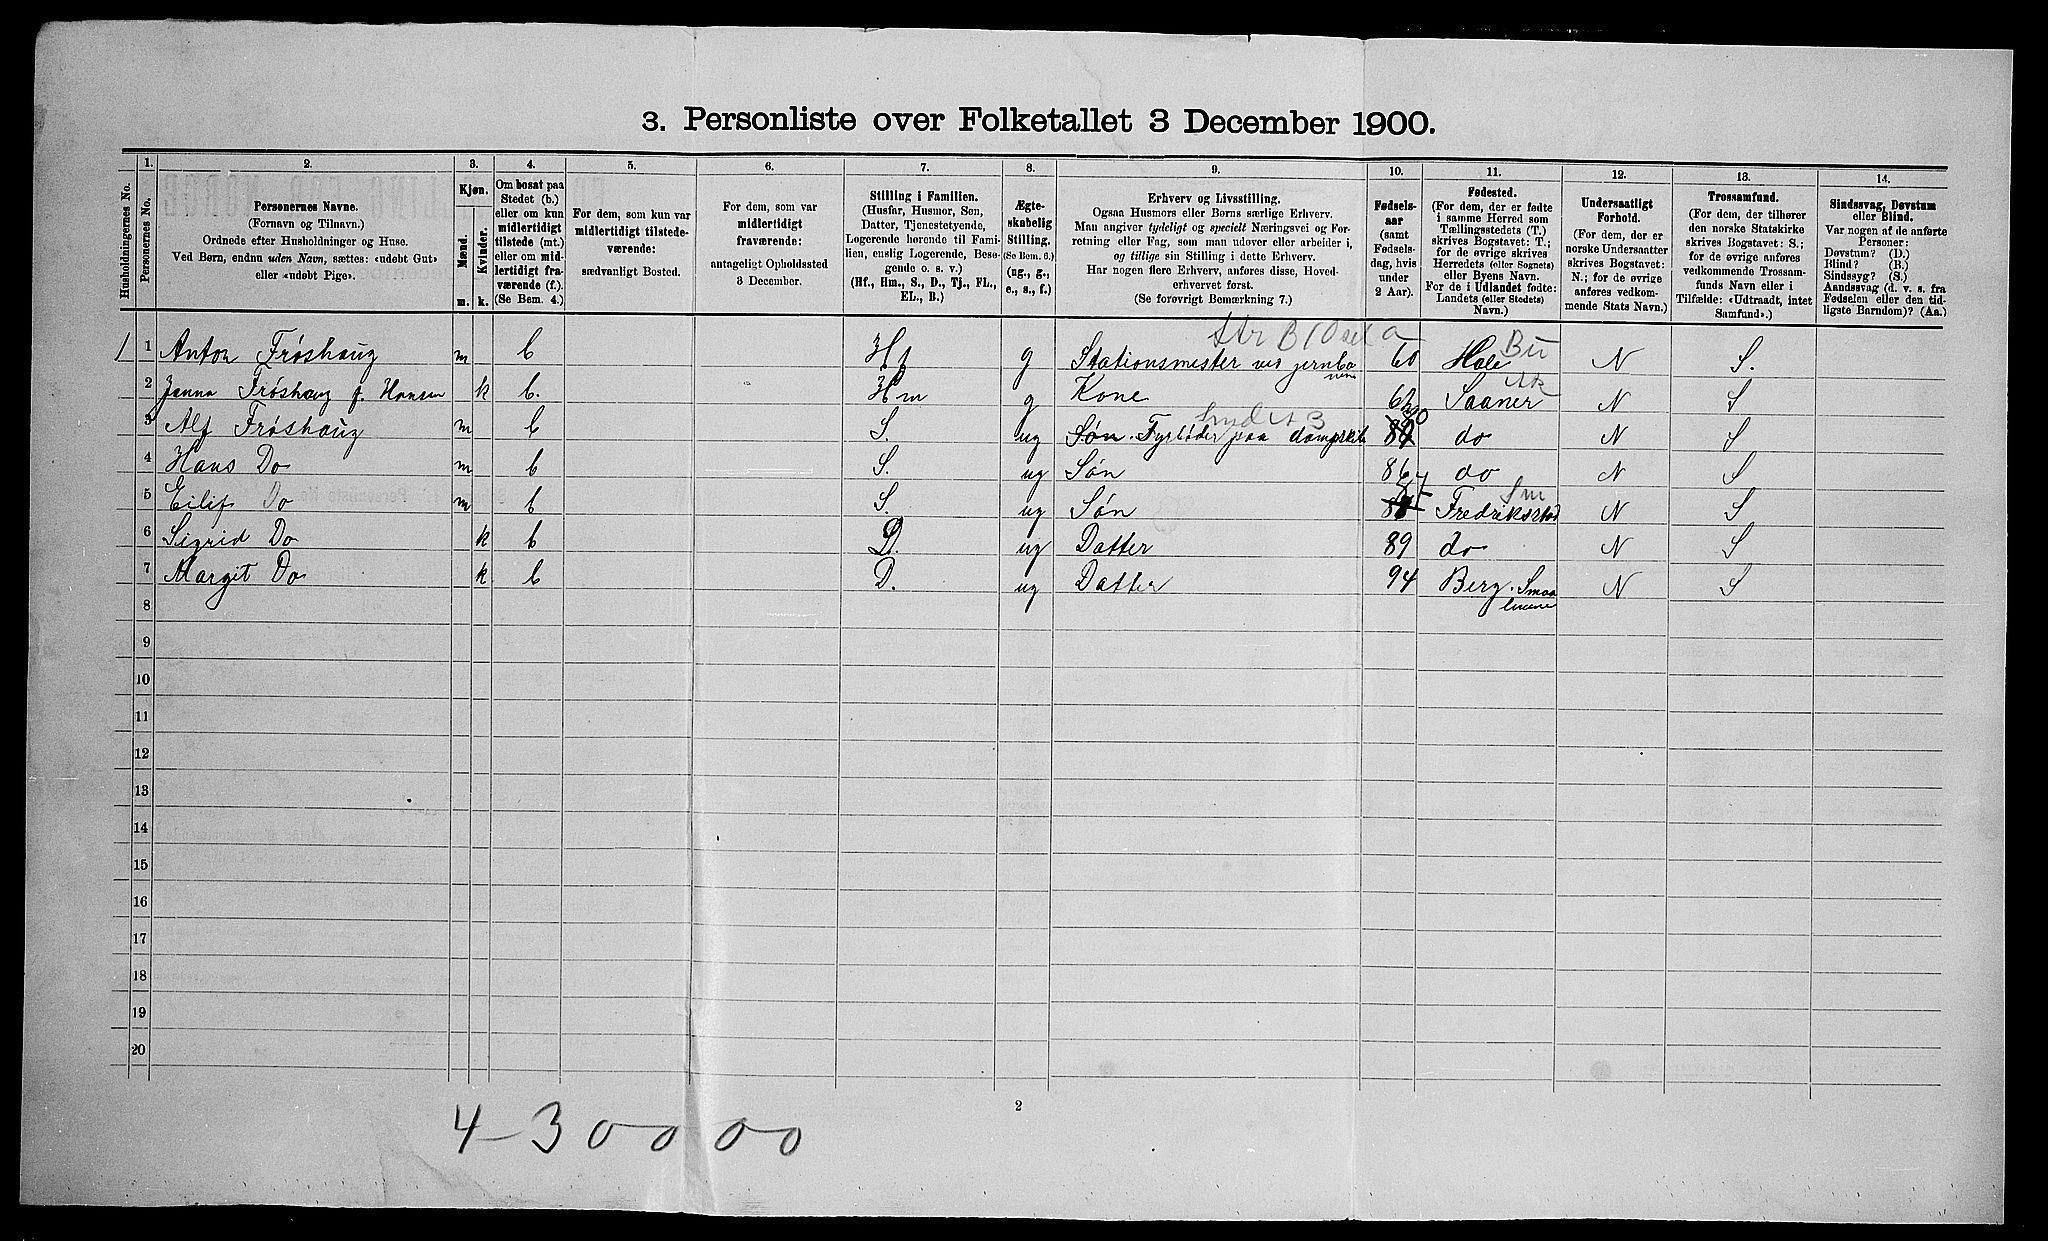 3. Personliste over Folketallet 3 December 1900.
Husholdningernes No.
1.
Personernes No.
2.
Personernes Navne.
(Fornavn og Tilnavn.)
Ordnede efter Husholdninger og Huse.
Ved Børn, endnu uden Navn, sættes: «udøbt Gut»
eller «udøbt Pige».
3.
Kjøn.
Mænd.
Kvinder.
m.
k.
4.
Om bosat paa
Stedet (b.)
eller om kun
midlertidigt
tilstede (mt.)
eller om mid-
lertidigt fra-
værende (f.).
(Se Bem. 4.)
5.
For dem, som kun var
midlertidigt tilstede-
værende:
sædvanligt Bosted.
6.
For dem, som var
midlertidigt
fraværende:
antageligt Opholdssted
3 December.
7.
Stilling i Familien.
(Husfar, Husmor, Søn,
Datter, Tjenestetyende,
Logerende hørende til Fami-
lien, enslig Logerende, Besø-
gende o. s. v.)
(Hf., Hm., S., D., Tj., FL.,
EL., B.)
8.
Ægte-
skabelig
Stilling.
(Se Bem. 6.)
(ug., g.,
e., s., f.)
9.
Erhverv og Livsstilling.
Ogsaa Husmors eller Børns særlige Erhverv.
Man angiver tydeligt og specielt Næringsvei og For-
retning eller Fag, som man udover eller arbeider i,
og tillige sin Stilling i dette Erhverv.
Har nogen flere Erhverv, anføres disse, Hoved-
erhvervet først.
(Se forøvrigt Bemærkning 7.)
10.
Fødsels-
aar
(samt
Fødsels-
dag, hvis
under
2 Aar).
11.
Fødested.
(For dem, der er fødte
i samme Herred som
Tællingsstedets (T.)
skrives Bogstavet: T.;
for de øvrige skrives
Herredets (eller Sognets)
eller Byens Navn.
For de i Udlandet fødte:
Landets (eller Stedets)
Navn.)
12.
Undersaatligt
Forhold.
(For dem, der er
norske Undersaatter
skrives Bogstavet:
N.; for de øvrige
anføres vedkom-
mende Stats Navn.)
13.
Trossamfund.
(For dem, der tilhører
den norske Statskirke
skrives Bogstavet: S.;
for de øvrige anføres
vedkommende Trossam-
funds Navn eller i
Tilfælde: «Udtraadt, intet
Samfund».)
14.
Sindssvag, Døvstum
eller Blind.
Var nogen af de anførte
Personer:
Døvstum? (D.)
Blind? (B.)
Sindssyg? (S.)
Aandssvag (d. v. s. fra
Fødselen eller den tid-
ligste Barndom)? (Aa.)
1 1 Anton Frøshaug m b Hf g Stationsmester ved jernba 60 Hole Bu N S.
nene
2 Janna Frøshaug f. Hansen k b. Hm g Kone 62 Saaner Ak N S
3 Alf Frøshaug m b S. ug Søn. Fyrbøder paa dampskib do N S
4 Hans Do m b S. ug Søn 86 do N S
5 Eilif Do m b S. ug Søn Fredrikstad Sm N S
6 Sigrid Do k b D. ug Datter 89 do N S
7 Margit Do k b D. ug Datter 94 Berg. Smaa N S
lenene
8
9
10
11
12
13
14
15
16
17
18
19
20
2
4-30000